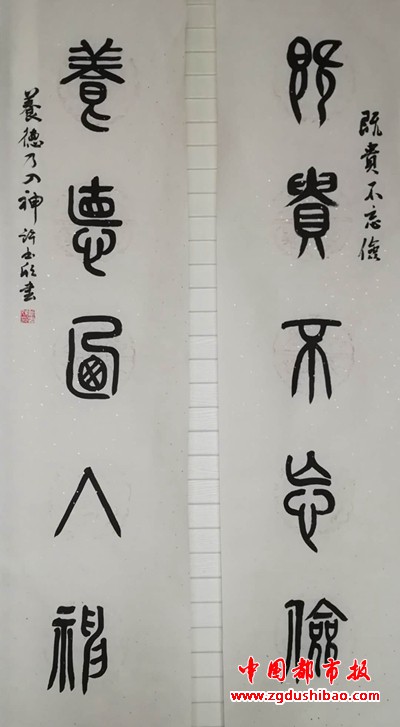 既貴不忘儉
既貴不忘儉
養悳乃入神
養德乃入神 許書
中国都市报
www.zgdushibao.com